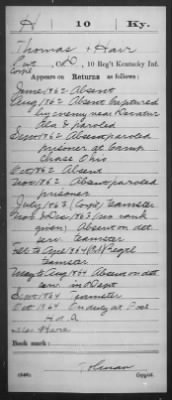 H 10 Ky.
Thomas Harr
Pvt Corpl, Co. D, 10 Reg't Kentucky Inf.
Appears on Returns as follows:
June 1862 Absent
Aug 1862 Absent Captured
by enemy near Decatur
Ala & paroled
Absent paroled
prisoner at Camp
Chase Ohio
Oct 1862 Absent
Nov 1862 Absent paroled
prisoner
July 1863 (Corpl) Teamster
Nov & Dec 1863 (no rank
given) Absent on det
serv. Teamster
Feb to Apr 1864 Regtl
Teamster
May to Aug 1864 Absent on det
serv. in Dept
Sept 1864 Teamster
Oct 1864 On duty at Post
Book mark:
Copyist.